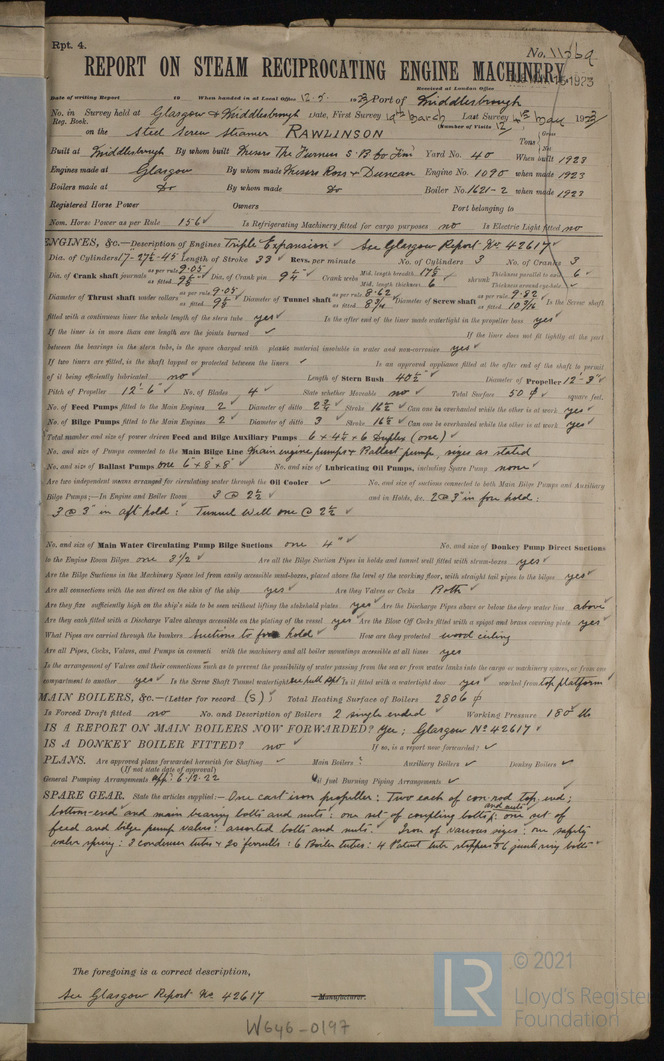 Rpt. 4.
No. 11569
REPORT ON STEAM RECIPROCATING ENGINE MACHINERY.
Received at London Office
Date of writing Report 19 When handed in at Local Office 12.5. 1923 Port of Middlesbrough
No. in Reg. Book. Survey held at Glasgow & Middlesbrough Date, First Survey March Last Survey May 1923
(Number of Visits 12)
on the Steel Screw Steamer RAWLINSON Tons Gross Net
Built at Middlesbrough By whom built Messrs The Furness S.B. Co Limd Yard No. 40 When built 1923
Engines made at Glasgow By whom made Messrs Ross & Duncan Engine No. 1090 when made 1923
Boilers made at Do By whom made Do Boiler No. 1621-2 when made 1923
Registered Horse Power Owners Port belonging to
Nom. Horse Power as per Rule 156 ✓ Is Refrigerating Machinery fitted for cargo purposes no Is Electric Light fitted no
ENGINES, &c.—Description of Engines Triple Expansion ✓ See Glasgow Report No 42617 ✓
Dia. of Cylinders 17-27½-45 Length of Stroke 33 ✓ Revs. per minute No. of Cylinders 3 No. of Cranks 3
Dia. of Crank shaft journals as per rule 9.05 as fitted Dia. of Crank pin 9¼ ✓ Crank webs Mid. length breadth Mid. length thickness 6 shrunk Thickness parallel to axis 6 ✓ Thickness around eye-hole
Diameter of Thrust shaft under collars as per rule 9.05 as fitted Diameter of Tunnel shaft as per rule 8.62 as fitted Diameter of Screw shaft as per rule 9.82 as fitted Is the Screw shaft
fitted with a continuous liner the whole length of the stern tube yes ✓ Is the after end of the liner made watertight in the propeller boss yes ✓
If the liner is in more than one length are the joints burned ✓ If the liner does not fit tightly at the part
between the bearings in the stern tube, is the space charged with plastic material insoluble in water and non-corrosive yes ✓
If two liners are fitted, is the shaft lapped or protected between the liners ✓ Is an approved appliance fitted at the after end of the shaft to permit
of it being efficiently lubricated no ✓ Length of Stern Bush 40½" ✓ Diameter of Propeller 12'-3" ✓
Pitch of Propeller 12'-6" ✓ No. of Blades 4 ✓ State whether Moveable no ✓ Total Surface 50 ✓ square feet.
No. of Feed Pumps fitted to the Main Engines 2 ✓ Diameter of ditto 2¾ ✓ Stroke 16½ ✓ Can one be overhauled while the other is at work yes ✓
No. of Bilge Pumps fitted to the Main Engines 2 ✓ Diameter of ditto 3 ✓ Stroke 16½ ✓ Can one be overhauled while the other is at work yes ✓
Total number and size of power driven Feed and Bilge Auxiliary Pumps 6 x 4½ x 6 Duplex (one) ✓
No. and size of Pumps connected to the Main Bilge Line Main engine pumps + Ballast pump, sizes as stated
No. and size of Ballast Pumps one 6 x 8 x 8" ✓ No. and size of Lubricating Oil Pumps, including Spare Pump none ✓
Are two independent means arranged for circulating water through the Oil Cooler ✓ No. and size of suctions connected to both Main Bilge Pumps and Auxiliary
Bilge Pumps;—In Engine and Boiler Room 3 @ 2½ ✓ and in Holds, &c. 2 @ 3" in fore hold:
3 @ 3" in aft hold: ✓ Tunnel Well one @ 2½ ✓
No. and size of Main Water Circulating Pump Bilge Suctions one 4" ✓ No. and size of Donkey Pump Direct Suctions
to the Engine Room Bilges one 3½ ✓ Are all the Bilge Suction Pipes in holds and tunnel well fitted with strum-boxes yes ✓
Are the Bilge Suctions in the Machinery Space led from easily accessible mud-boxes, placed above the level of the working floor, with straight tail pipes to the bilges yes ✓
Are all connections with the sea direct on the skin of the ship yes ✓ Are they Valves or Cocks Both ✓
Are they fixed sufficiently high on the ship's side to be seen without lifting the stokehold plates yes ✓ Are the Discharge Pipes above or below the deep water line above ✓
Are they each fitted with a Discharge Valve always accessible on the plating of the vessel yes ✓ Are the Blow Off Cocks fitted with a spigot and brass covering plate yes ✓
What Pipes are carried through the bunkers Suctions to fore hold ✓ How are they protected wood ceiling
Are all Pipes, Cocks, Valves, and Pumps in connecti with the machinery and all boiler mountings accessible at all times ✓ yes
Is the arrangement of Valves and their connections such as to prevent the possibility of water passing from the sea or from water tanks into the cargo or machinery spaces, or from one
compartment to another yes ✓ Is the Screw Shaft Tunnel watertight see hull Rpt Is it fitted with a watertight door yes ✓ worked from top platform ✓
MAIN BOILERS, &c.—(Letter for record (S) ✓ Total Heating Surface of Boilers 2806
Is Forced Draft fitted no ✓ No. and Description of Boilers 2 single ended ✓ Working Pressure 180 lb
IS A REPORT ON MAIN BOILERS NOW FORWARDED? yes; Glasgow No 42617 ✓
IS A DONKEY BOILER FITTED? no ✓ If so, is a report now forwarded? ✓
PLANS. Are approved plans forwarded herewith for Shafting ✓ Main Boilers ? Auxiliary Boilers ✓ Donkey Boilers ✓
(If not state date of approval)
General Pumping Arrangements app. 6.12.22 Oil fuel Burning Piping Arrangements ✓
SPARE GEAR. State the articles supplied:— One cast iron propeller: Two each of con-rod top end;
bottom-end and main bearing bolts and nuts: one set of coupling bolts and nuts: one set of
feed and bilge pump valves: assorted bolts and nuts. Iron of various sizes: one safety
valve spring: 3 condenser tubes + 20 ferrules: 6 Boiler tubes: 4 Patent tube stoppers & 6 junk ring bolts
The foregoing is a correct description,
See Glasgow Report No. 42617
Manufacturer.
W646-0197
LR
© 2021
Lloyd's Register
Foundation